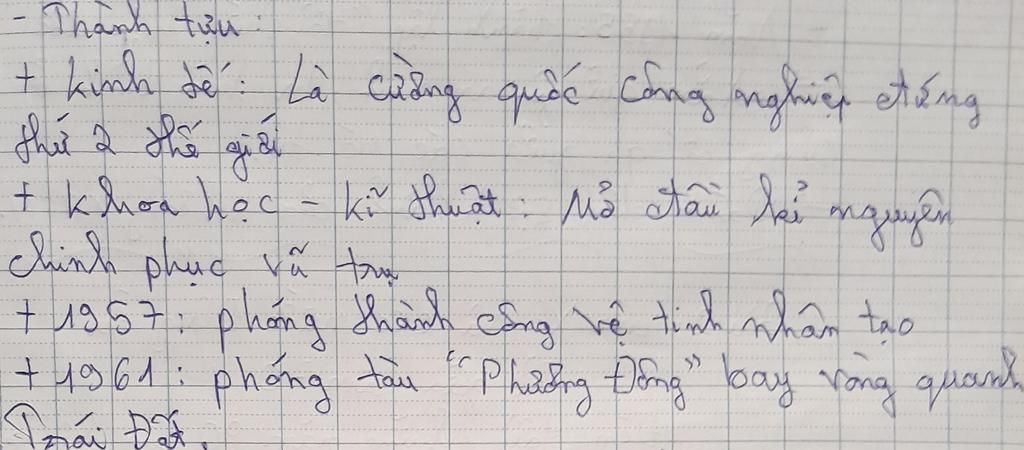 - Thành tựu:
+ Kinh tế: Là cường quốc công nghiệp đứng
thứ 2 thế giới
+ Khoa học - kĩ thuật: Mở đầu kỉ nguyên
chinh phục vũ trụ
+ 1957: phóng thành công vệ tinh nhân tạo
+ 1961: phóng tàu "Phương Đông" bay vòng quanh
Trái Đất.